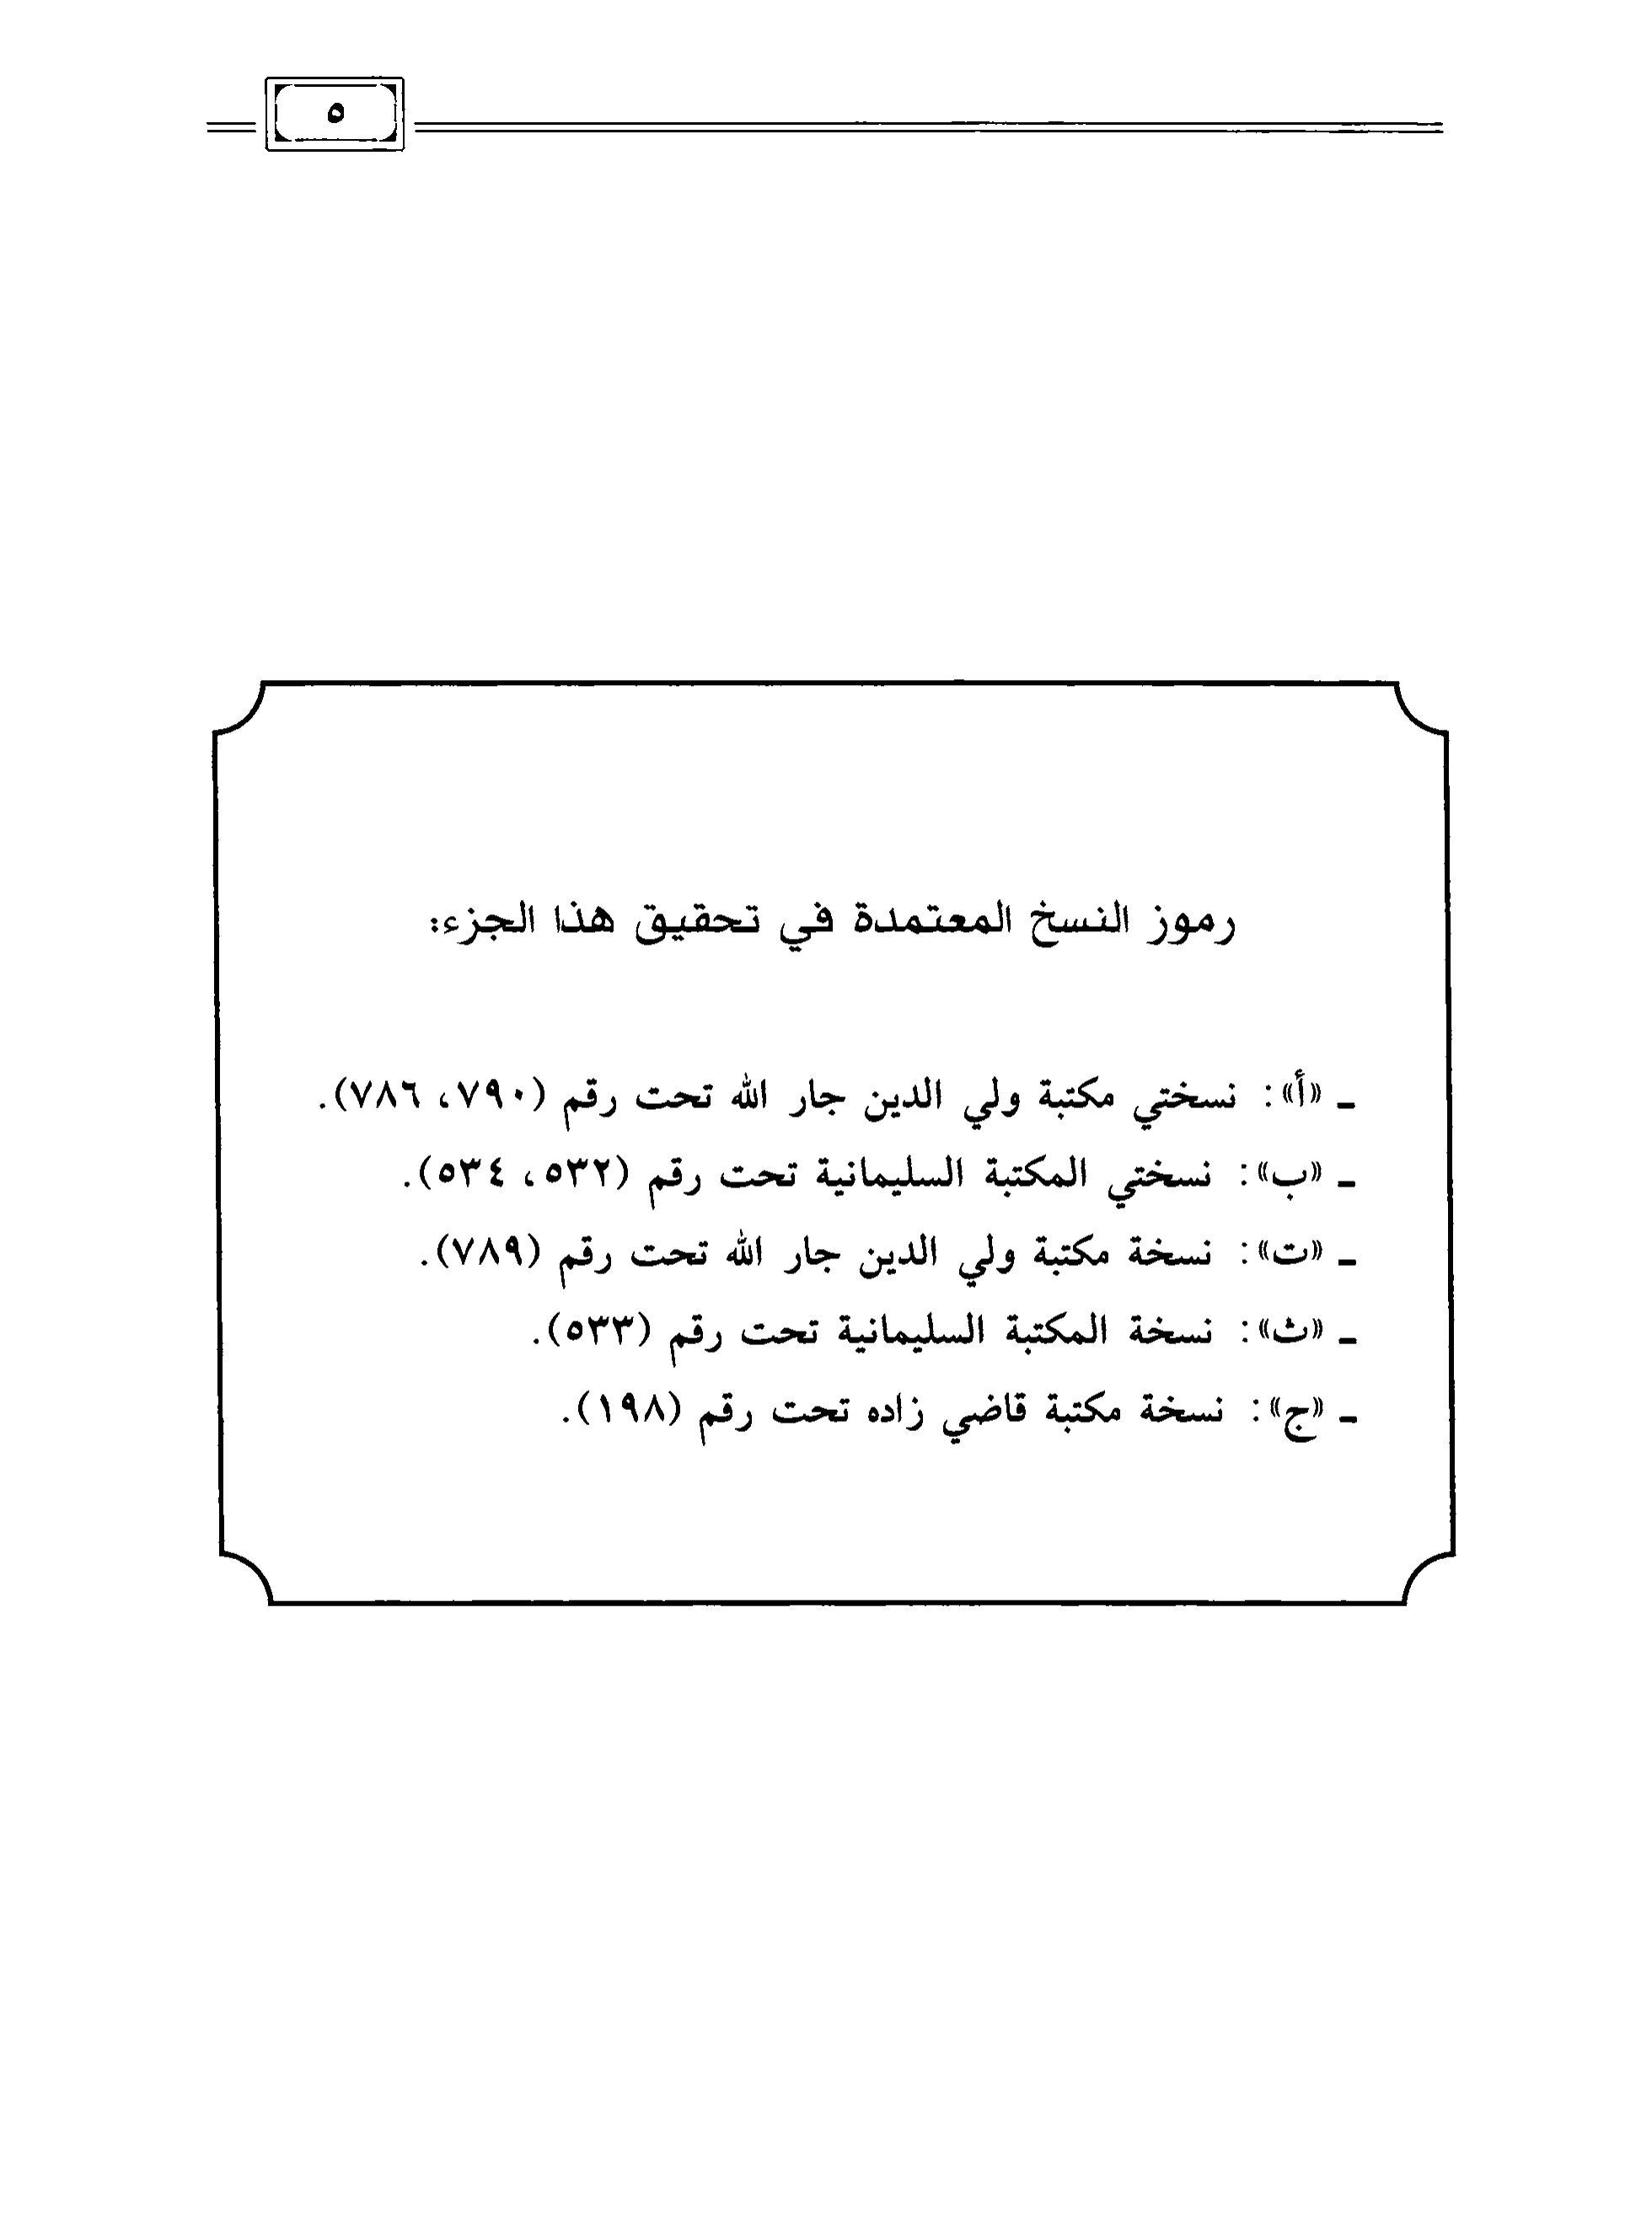 ٥
رموز النسخ المعتمدة في تحقيق هذا الجزء:
ـ «أ»: نسختي مكتبة ولي الدين جار الله تحت رقم (٧٩٠، ٧٨٦).
ـ «ب»: نسختي المكتبة السليمانية تحت رقم (٥٣٢، ٥٣٤).
ـ «ت»: نسخة مكتبة ولي الدين جار الله تحت رقم (٧٨٩).
ـ «ث»: نسخة المكتبة السليمانية تحت رقم (٥٣٣).
ـ «ج»: نسخة مكتبة قاضي زاده تحت رقم (١٩٨).